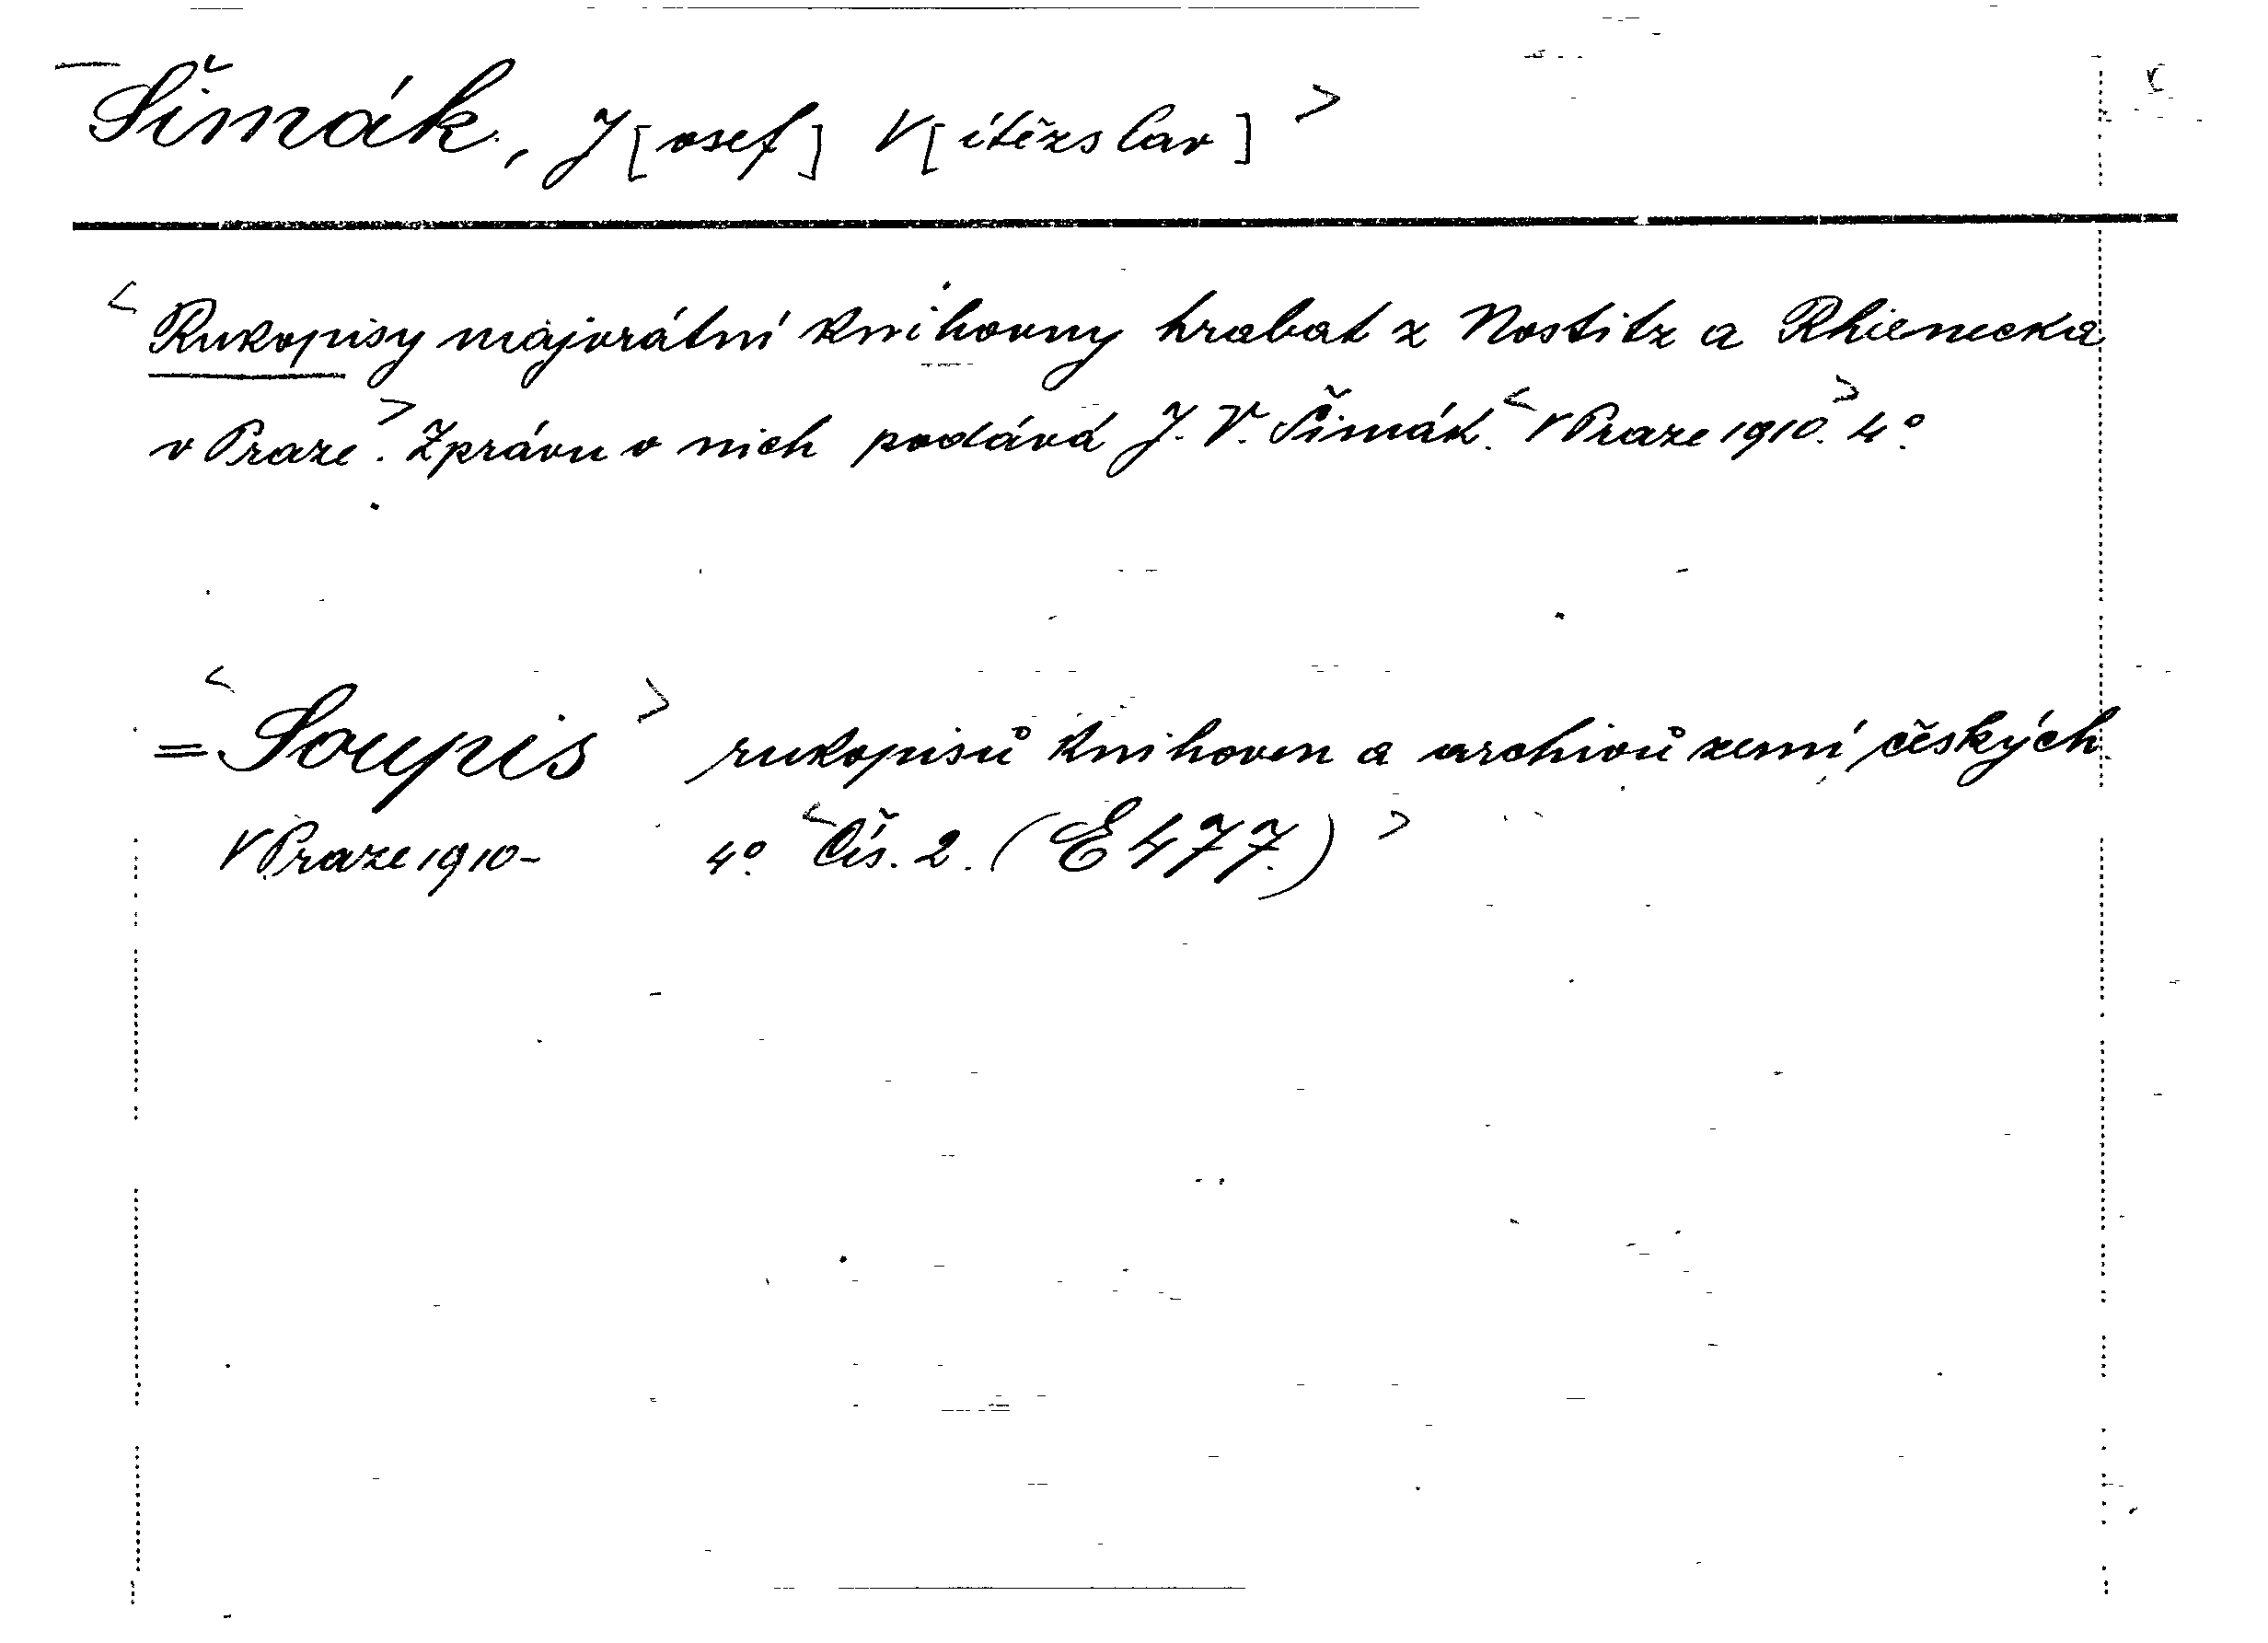 Šimák, J[osef] V[ítězslav] >
< Rukopisy majorátní knihovny hrabat z Nostitz a Rhienecka
v Praze >. Zprávu o nich podává J. V. Šimák. < V Praze 1910. > 4°.
= < Soupis > rukopisů knihoven a archivů zemí českých
V Praze 1910- 4°. < Čís. 2. (E 477.) >